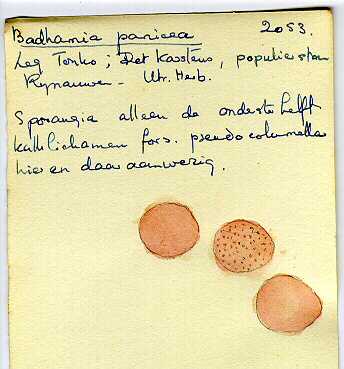 Badhamia panicea 2053.
Leg Tonko; Det Karstens, populierstam
Rynauwen - Utr. Herb.
Sporangia alleen de onderste helft
kalklichamen fors. pseudocolumella
hier en daar aanwezig.